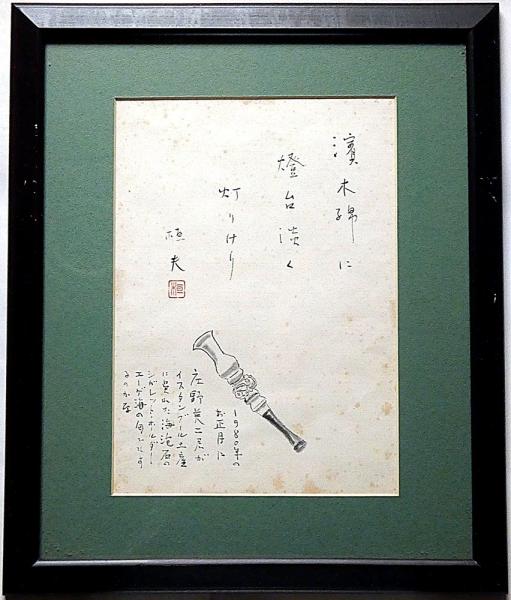 濱木綿に
燈台淡く
灯りけり
桓夫
桓
1980年の
お正月に
庄野英二兄が
イスタンブール土産
に呉れた海泡石の
シガレット・ホルダー。
エーゲ海の